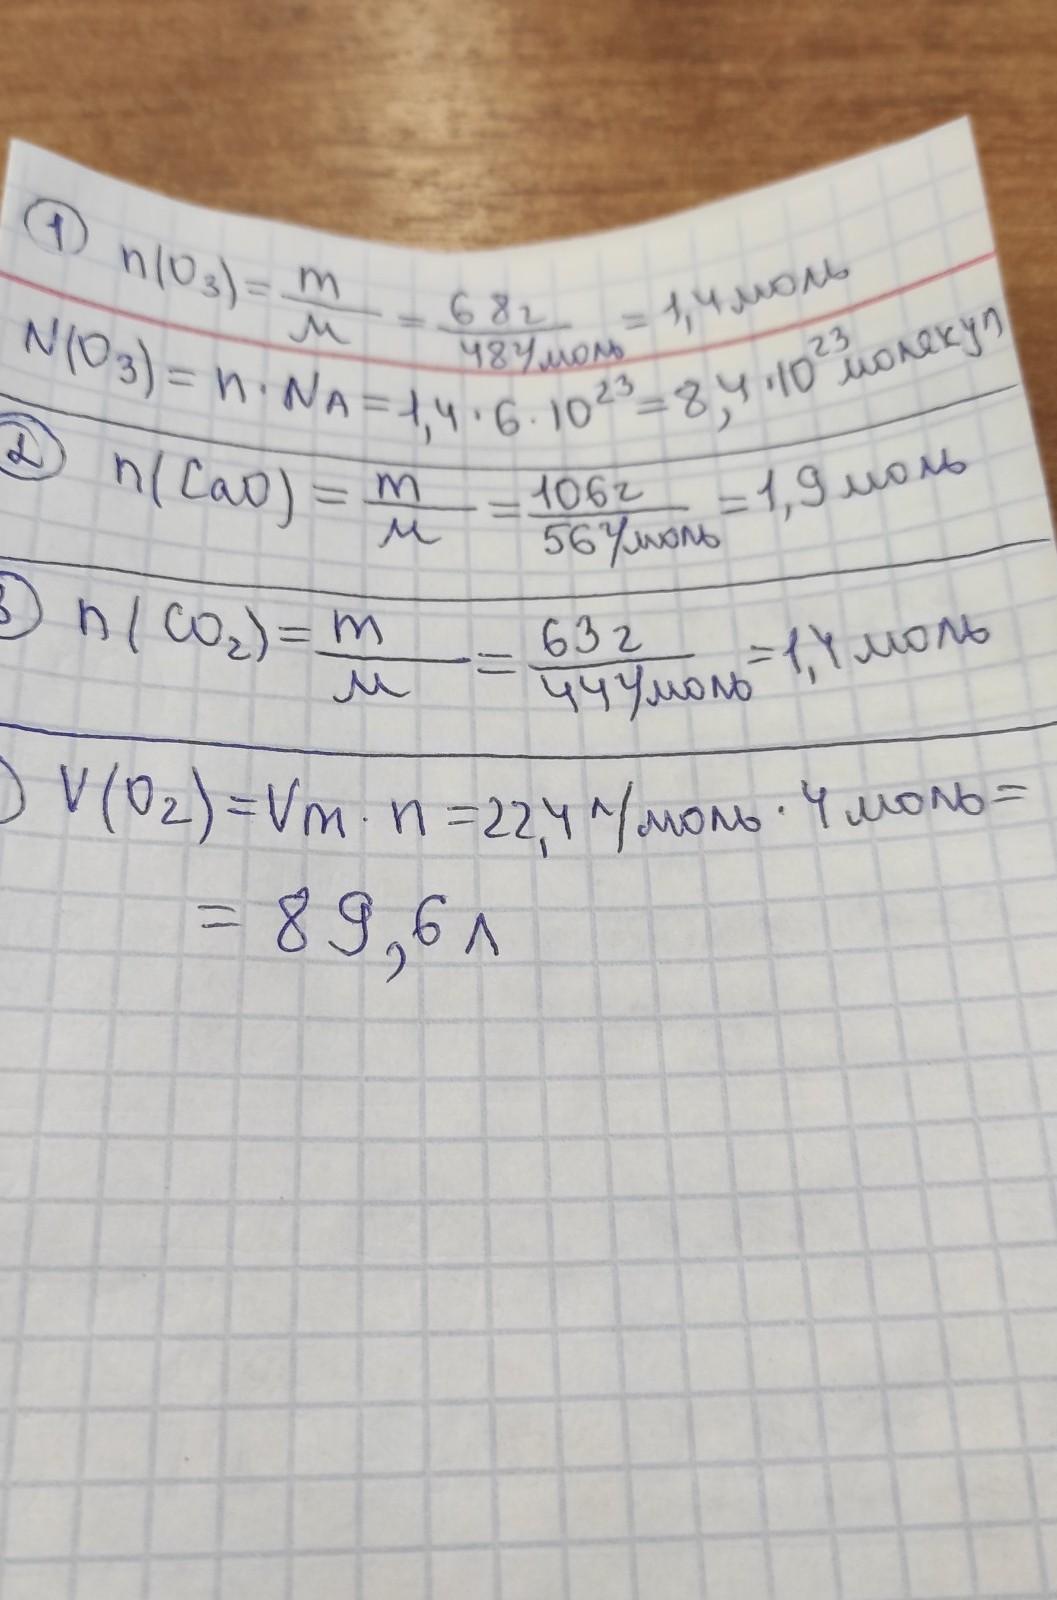 1 n(O₃) = m/M = 68г/48г/моль = 1,4 моль
N(O₃) = n · NA = 1,4 · 6 · 10²³ = 8,4 · 10²³ молекул
2 n(CaO) = m/M = 106г/56г/моль = 1,9 моль
3) n(CO₂) = m/M = 63г/44г/моль = 1,4 моль
) V(O₂) = Vm · n = 22,4 л/моль · 4 моль =
= 89,6 л